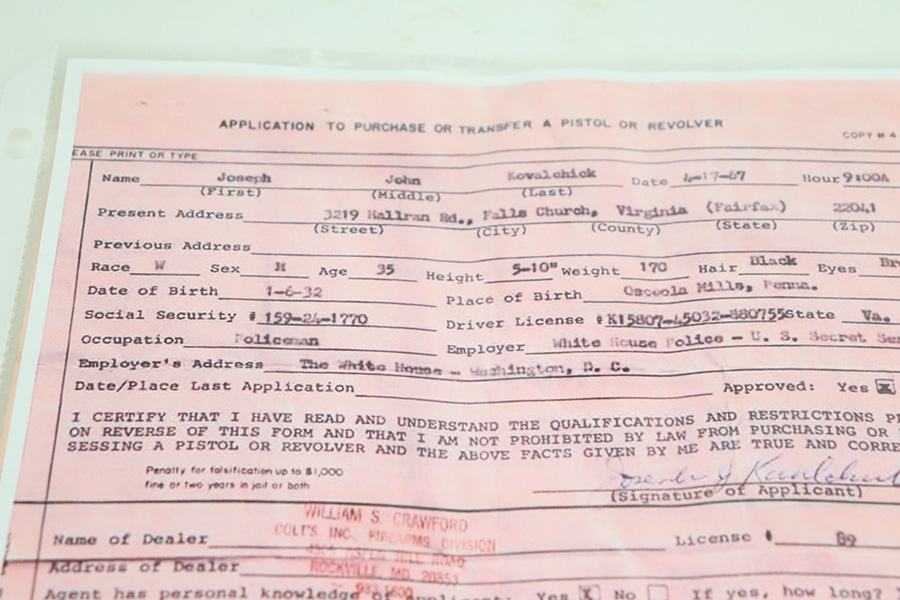 APPLICATION TO PURCHASE OR TRANSFER A PISTOL OR REVOLVER
COPY # 4
EASE PRINT OR TYPE
Name Joseph John Kovalchick Date 4-17-67 Hour 9:00A
(First) (Middle) (Last)
Present Address 3219 Hallran Rd., Falls Church, Virginia (Fairfax) 22041
(Street) (City) (County) (State) (Zip)
Previous Address
Race W Sex M Age 35 Height 5-10" Weight 170 Hair Black Eyes Br
Date of Birth 1-6-32 Place of Birth Osceola Mills, Penna.
Social Security # 159-24-1770 Driver License # K15807-45032-880755 State Va.
Occupation Policeman Employer White House Police - U. S. Secret Se
Employer's Address The White House - Washington, D. C.
Date/Place Last Application Approved: Yes
I CERTIFY THAT I HAVE READ AND UNDERSTAND THE QUALIFICATIONS AND RESTRICTIONS P
ON REVERSE OF THIS FORM AND THAT I AM NOT PROHIBITED BY LAW FROM PURCHASING OR
SESSING A PISTOL OR REVOLVER AND THE ABOVE FACTS GIVEN BY ME ARE TRUE AND CORRE
Penalty for falsification up to $1,000
fine or two years in jail or both
Joseph J Kovalchick
(Signature of Applicant)
WILLIAM S. CRAWFORD
COLT'S INC. FIREARMS DIVISION
Name of Dealer License # 89
ASPEN HILL ROAD
Address of Dealer ROCKVILLE, MD. 20853
Agent has personal knowledge of Applicant: Yes X No If yes, how long?